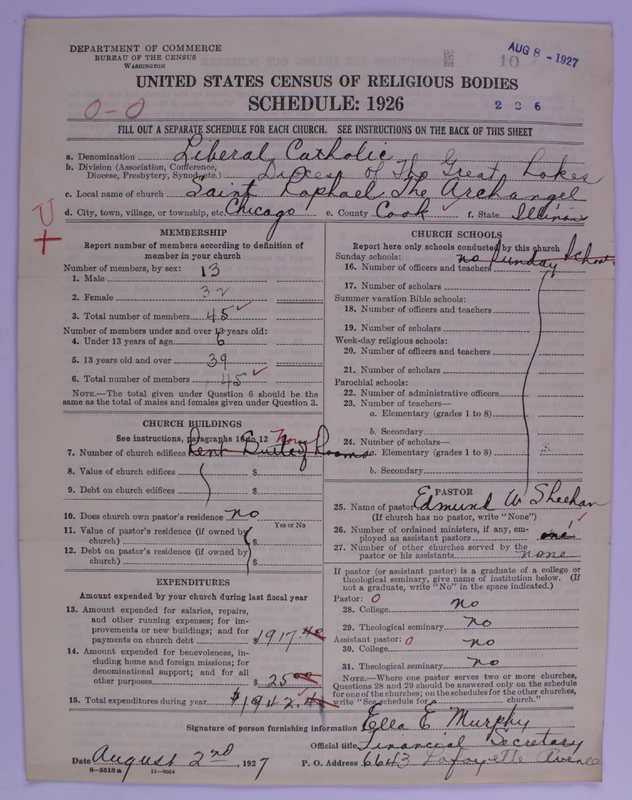 DEPARTMENT OF COMMERCE
BUREAU OF THE CENSUS
WASHINGTON
10
AUG 8 - 1927
UNITED STATES CENSUS OF RELIGIOUS BODIES
SCHEDULE: 1926
0-0
2 2 6
FILL OUT A SEPARATE SCHEDULE FOR EACH CHURCH. SEE INSTRUCTIONS ON THE BACK OF THIS SHEET
a. Denomination Liberal Catholic
b. Division (Association, Conference, Diocese, Presbytery, Synod, etc.) Dioces of The Great Lakes
c. Local name of church Saint Raphael The Archangel
d. City, town, village, or township, etc. Chicago e. County Cook f. State Illinois
U
+
MEMBERSHIP
Report number of members according to definition of
member in your church
Number of members, by sex:
1. Male 13
2. Female 32
3. Total number of members 45
Number of members under and over 13 years old:
4. Under 13 years of age 6
5. 13 years old and over 39
6. Total number of members 45
NOTE.—The total given under Question 6 should be the
same as the total of males and females given under Question 3.
CHURCH BUILDINGS
See instructions, paragraphs 10 to 12 None
7. Number of church edifices Rent Suite of Rooms
8. Value of church edifices $
9. Debt on church edifices $
10. Does church own pastor's residence? no
Yes or No
11. Value of pastor's residence (if owned by
church) $
12. Debt on pastor's residence (if owned by
church) $
EXPENDITURES
Amount expended by your church during last fiscal year
13. Amount expended for salaries, repairs,
and other running expenses; for im-
provements or new buildings; and for
payments on church debt $1917.40
14. Amount expended for benevolences, in-
cluding home and foreign missions; for
denominational support; and for all
other purposes $25.00
15. Total expenditures during year $1942.40
CHURCH SCHOOLS
Report here only schools conducted by this church
Sunday schools: no Sunday School
16. Number of officers and teachers
17. Number of scholars
Summer vacation Bible schools:
18. Number of officers and teachers
19. Number of scholars
Week-day religious schools:
20. Number of officers and teachers
21. Number of scholars
Parochial schools:
22. Number of administrative officers
23. Number of teachers—
a. Elementary (grades 1 to 8)
b. Secondary
24. Number of scholars—
a. Elementary (grades 1 to 8)
b. Secondary
PASTOR
25. Name of pastor Edmund W Sheehan
(If church has no pastor, write "None")
26. Number of ordained ministers, if any, em-
ployed as assistant pastors one 1
27. Number of other churches served by the
pastor or his assistants none
If pastor (or assistant pastor) is a graduate of a college or
theological seminary, give name of institution below. (If
not a graduate, write "No" in the space indicated.)
Pastor: 0
28. College no
29. Theological seminary no
Assistant pastor: 0
30. College no
31. Theological seminary no
NOTE.—Where one pastor serves two or more churches,
Questions 28 and 29 should be answered only on the schedule
for one of the churches; on the schedules for the other churches,
write "See schedule for church."
Signature of person furnishing information Ella E Murphy
Official title Financial Secretary
Date August 2nd, 1927 P. O. Address 6643 Lafayette Avenue
8-5818a 11-9684